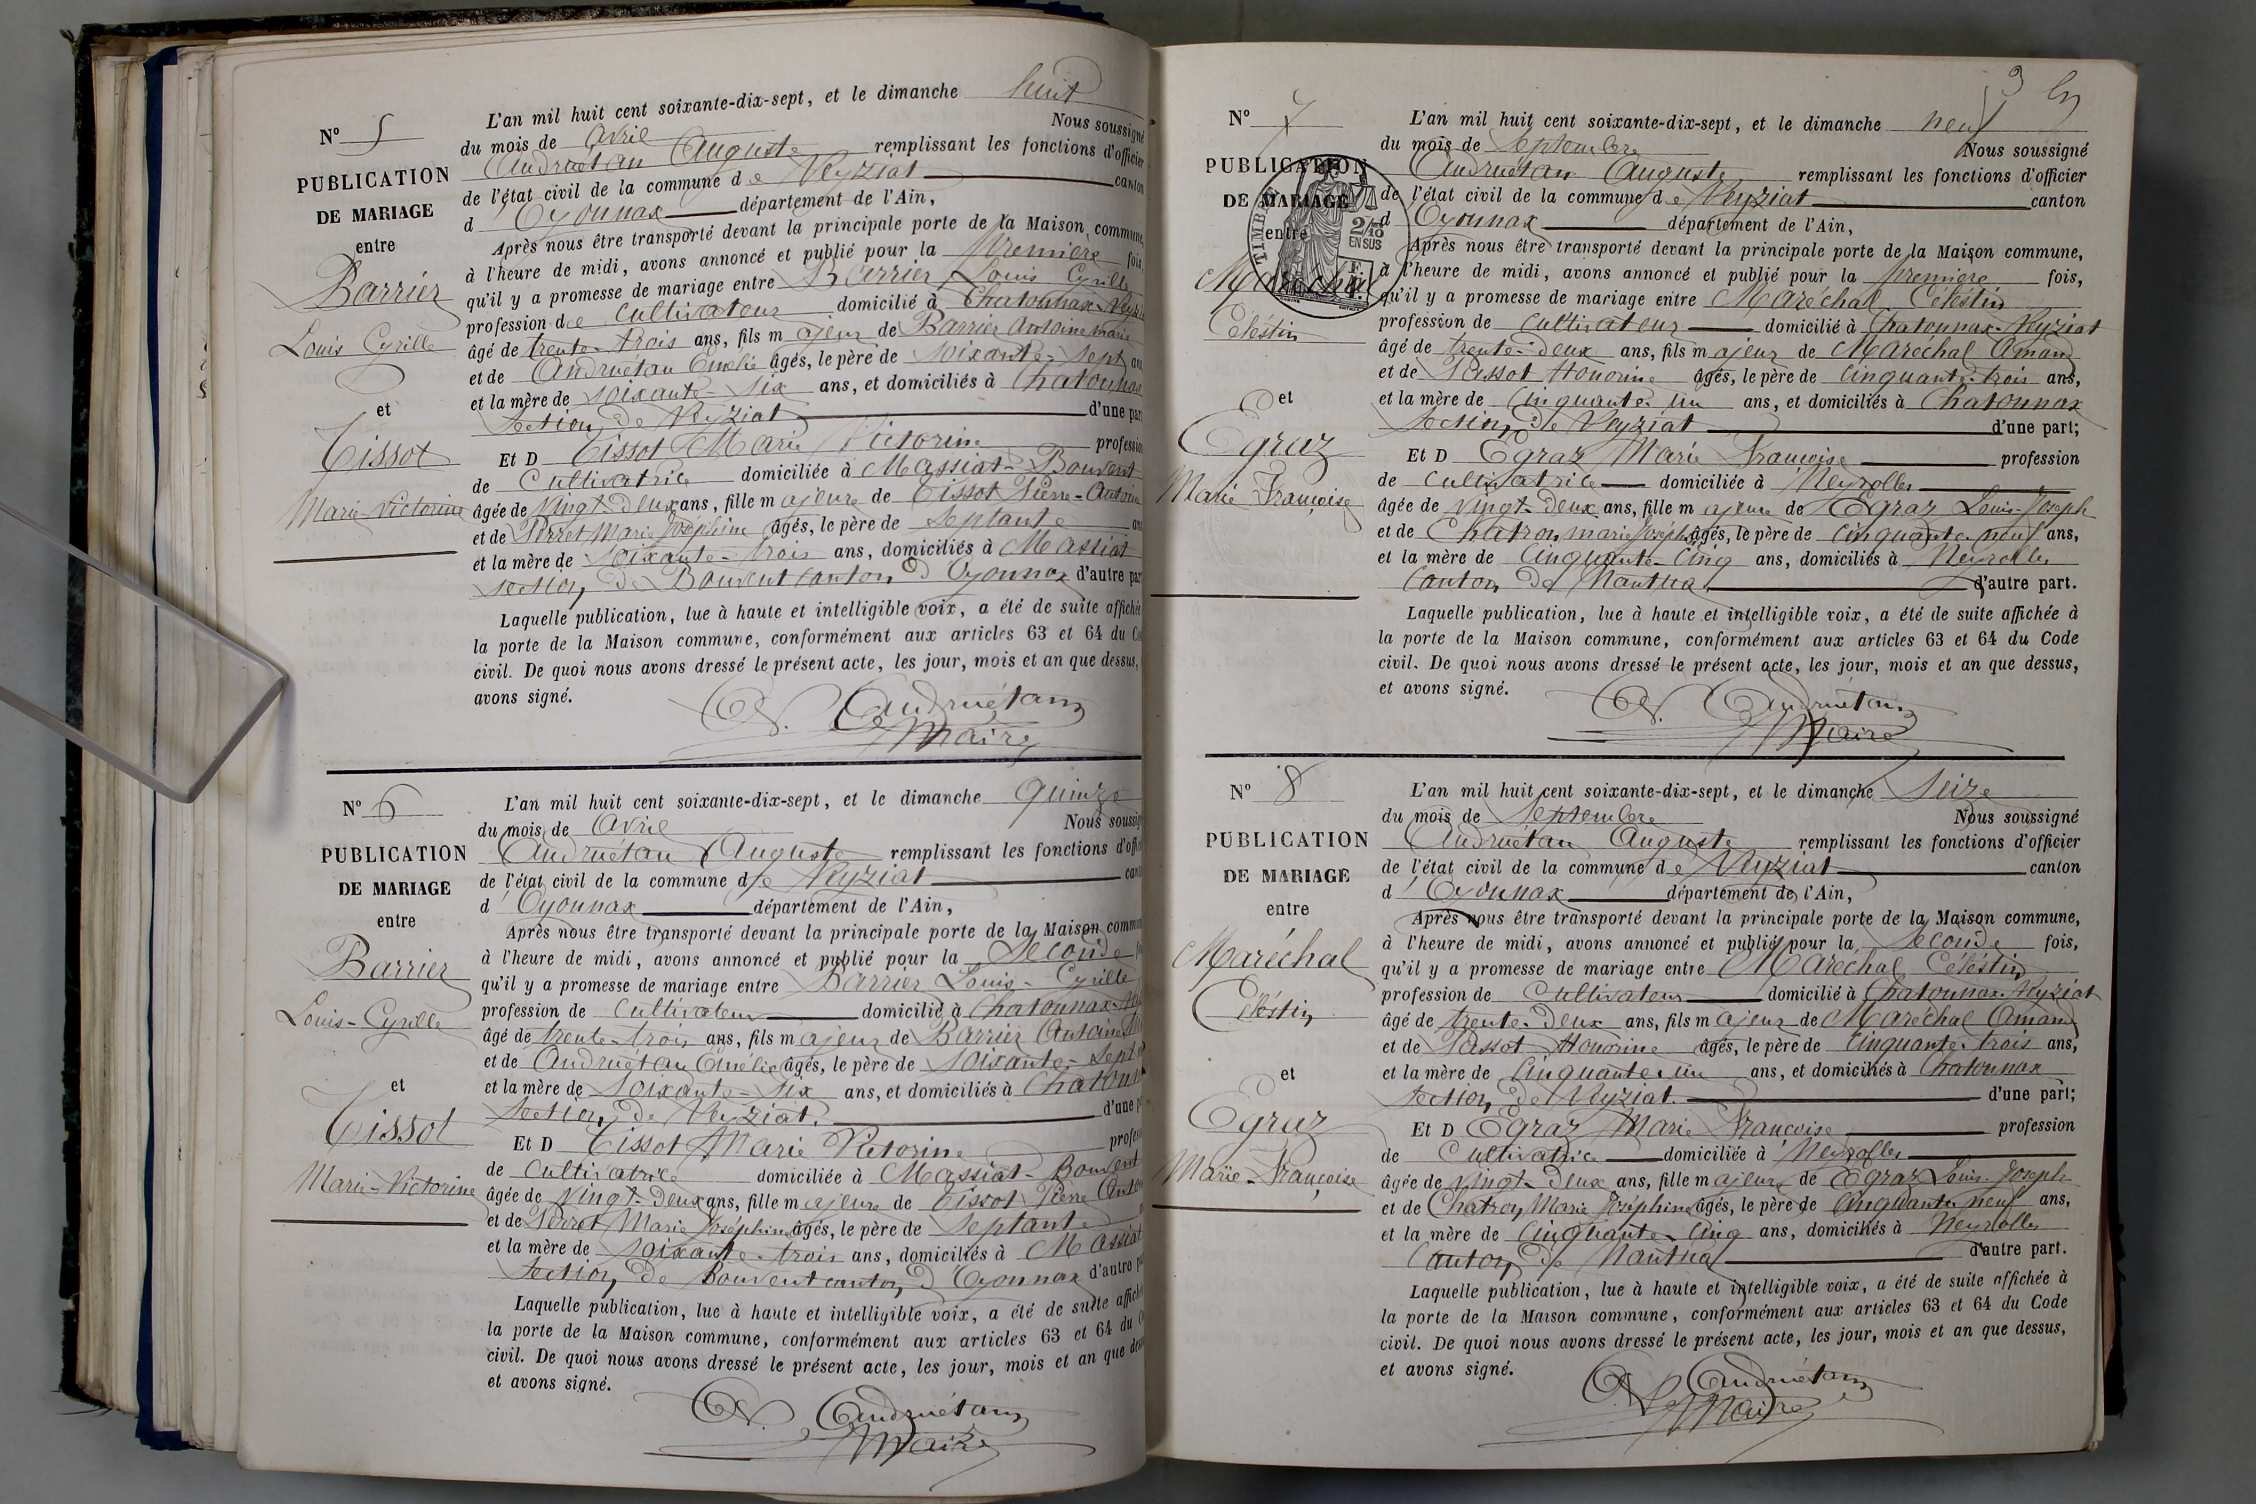 N° 5
PUBLICATION
DE MARIAGE
entre
Barrier
Louis Cyrille
et
Tissot
Marie-Victorine
L'an mil huit cent soixante-dix-sept, et le dimanche huit
du mois de avril Nous soussigné
Andruétan Auguste remplissant les fonctions d'officier
de l'état civil de la commune de Veyziat canton
d'Oyonnax département de l'Ain,
Après nous être transporté devant la principale porte de la Maison commune,
à l'heure de midi, avons annoncé et publié pour la première fois,
qu'il y a promesse de mariage entre Barrier Louis Cyrille
profession de cultivateur domicilié à Chatonnax-Veyziat
âgé de trente-trois ans, fils majeur de Barrier Antoine marie
et de Andruétan Emélie âgés, le père de soixante-sept ans
et la mère de soixante-six ans, et domiciliés à Chatonnax
section de Veyziat d'une part
Et D Tissot Marie Victorine profession
de Cultivatrice domiciliée à Massiat-Bouvent
âgée de vingt-deux ans, fille majeure de Tissot Pierre-Antoine
et de Perret Marie Joséphine âgés, le père de septante ans
et la mère de soixante-trois ans, domiciliés à Massiat
section de Bouvent canton d'Oyonnax d'autre part
Laquelle publication, lue à haute et intelligible voix, a été de suite affichée
la porte de la Maison commune, conformément aux articles 63 et 64 du Co
civil. De quoi nous avons dressé le présent acte, les jour, mois et an que dessus,
avons signé.
A. Andruétan
Maire
N° 6
PUBLICATION
DE MARIAGE
entre
Barrier
Louis-Cyrille
et
Tissot
Marie-Victorine
L'an mil huit cent soixante-dix-sept, et le dimanche quinze
du mois de avril Nous soussig
Andruétan Auguste remplissant les fonctions d'offic
de l'état civil de la commune de Veyziat cant
d'Oyonnax département de l'Ain,
Après nous être transporté devant la principale porte de la Maison commun
à l'heure de midi, avons annoncé et publié pour la Seconde fo
qu'il y a promesse de mariage entre Barrier Louis-Cyrille
profession de Cultivateur domicilié à Chatonnax-Vey
âgé de trente-trois ans, fils majeur de Barrier Antoine M
et de Andruétan Emélie âgés, le père de soixante-sept
et la mère de soixante-six ans, et domiciliés à Chatonn
section de Veyziat. d'une p
Et D Tissot Marie Victorine profess
de cultivatrice domiciliée à Massiat-Bouvent
âgée de vingt-deux ans, fille majeure de Tissot Pierre Anto
et de Perret Marie Joséphine âgés, le père de septante
et la mère de soixante-trois ans, domiciliés à Massiat
section de Bouvent canton d'Oyonnax d'autre p
Laquelle publication, lue à haute et intelligible voix, a été de suite affich
la porte de la Maison commune, conformément aux articles 63 et 64 du C
civil. De quoi nous avons dressé le présent acte, les jour, mois et an que des
et avons signé.
A. Andruétan
Maire
3
N° 7
PUBLICATION
DE MARIAGE
entre
TIMBRE
2/10
EN SUS
Maréchal
Céléstin
et
Egraz
Marie Françoise
L'an mil huit cent soixante-dix-sept, et le dimanche neuf
du mois de septembre Nous soussigné
Andruétan Auguste remplissant les fonctions d'officier
de l'état civil de la commune de Veyziat canton
d'Oyonnax département de l'Ain,
Après nous être transporté devant la principale porte de la Maison commune,
à l'heure de midi, avons annoncé et publié pour la première fois,
qu'il y a promesse de mariage entre Maréchal Céléstin
profession de cultivateur domicilié à Chatonnax-Veyziat
âgé de trente-deux ans, fils majeur de Maréchal Amand
et de Passot Honorine âgés, le père de cinquante-trois ans,
et la mère de cinquante-un ans, et domiciliés à Chatonnax
section de Veyziat d'une part;
Et D Egraz Marie Françoise profession
de cultivatrice domiciliée à Neyrolles
âgée de vingt-deux ans, fille majeure de Egraz Louis-Joseph
et de Chatron marie Joséphine âgés, le père de cinquante-neuf ans,
et la mère de cinquante-cinq ans, domiciliés à Neyrolles
Canton de Nantua d'autre part.
Laquelle publication, lue à haute et intelligible voix, a été de suite affichée à
la porte de la Maison commune, conformément aux articles 63 et 64 du Code
civil. De quoi nous avons dressé le présent acte, les jour, mois et an que dessus,
et avons signé.
A. Andruétan
Maire
N° 8
PUBLICATION
DE MARIAGE
entre
Maréchal
Céléstin
et
Egraz
Marie-Françoise
L'an mil huit cent soixante-dix-sept, et le dimanche seize
du mois de Septembre Nous soussigné
Andruétan Auguste remplissant les fonctions d'officier
de l'état civil de la commune de Veyziat canton
d'Oyonnax département de l'Ain,
Après nous être transporté devant la principale porte de la Maison commune,
à l'heure de midi, avons annoncé et publié pour la seconde fois,
qu'il y a promesse de mariage entre Maréchal Céléstin
profession de Cultivateur domicilié à Chatonnax-Veyziat
âgé de trente-deux ans, fils majeur de Maréchal Amand
et de Passot Honorine âgés, le père de cinquante-trois ans,
et la mère de cinquante-un ans, et domiciliés à Chatonnax
section de Veyziat. d'une part;
Et D Egraz Marie Françoise profession
de Cultivatrice domiciliée à Neyrolles
âgée de vingt-deux ans, fille majeure de Egraz Louis-Joseph
et de Chatron Marie Joséphine âgés, le père de cinquante-neuf ans,
et la mère de cinquante-cinq ans, domiciliés à Neyrolles
Canton de Nantua d'autre part.
Laquelle publication, lue à haute et intelligible voix, a été de suite affichée à
la porte de la Maison commune, conformément aux articles 63 et 64 du Code
civil. De quoi nous avons dressé le présent acte, les jour, mois et an que dessus,
et avons signé.
A. Andruétan
Maire